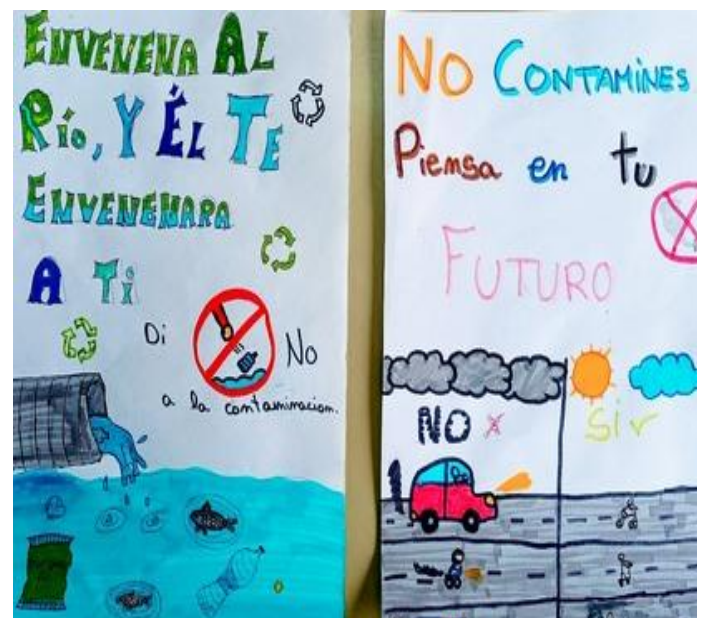 ENVENENA AL
Río, Y ÉL TE
ENVENENARA
A Ti
Di No
a la contaminacion.
NO CONTAMiNES
Piensa en tu
FUTURO
NO x
Si ✓